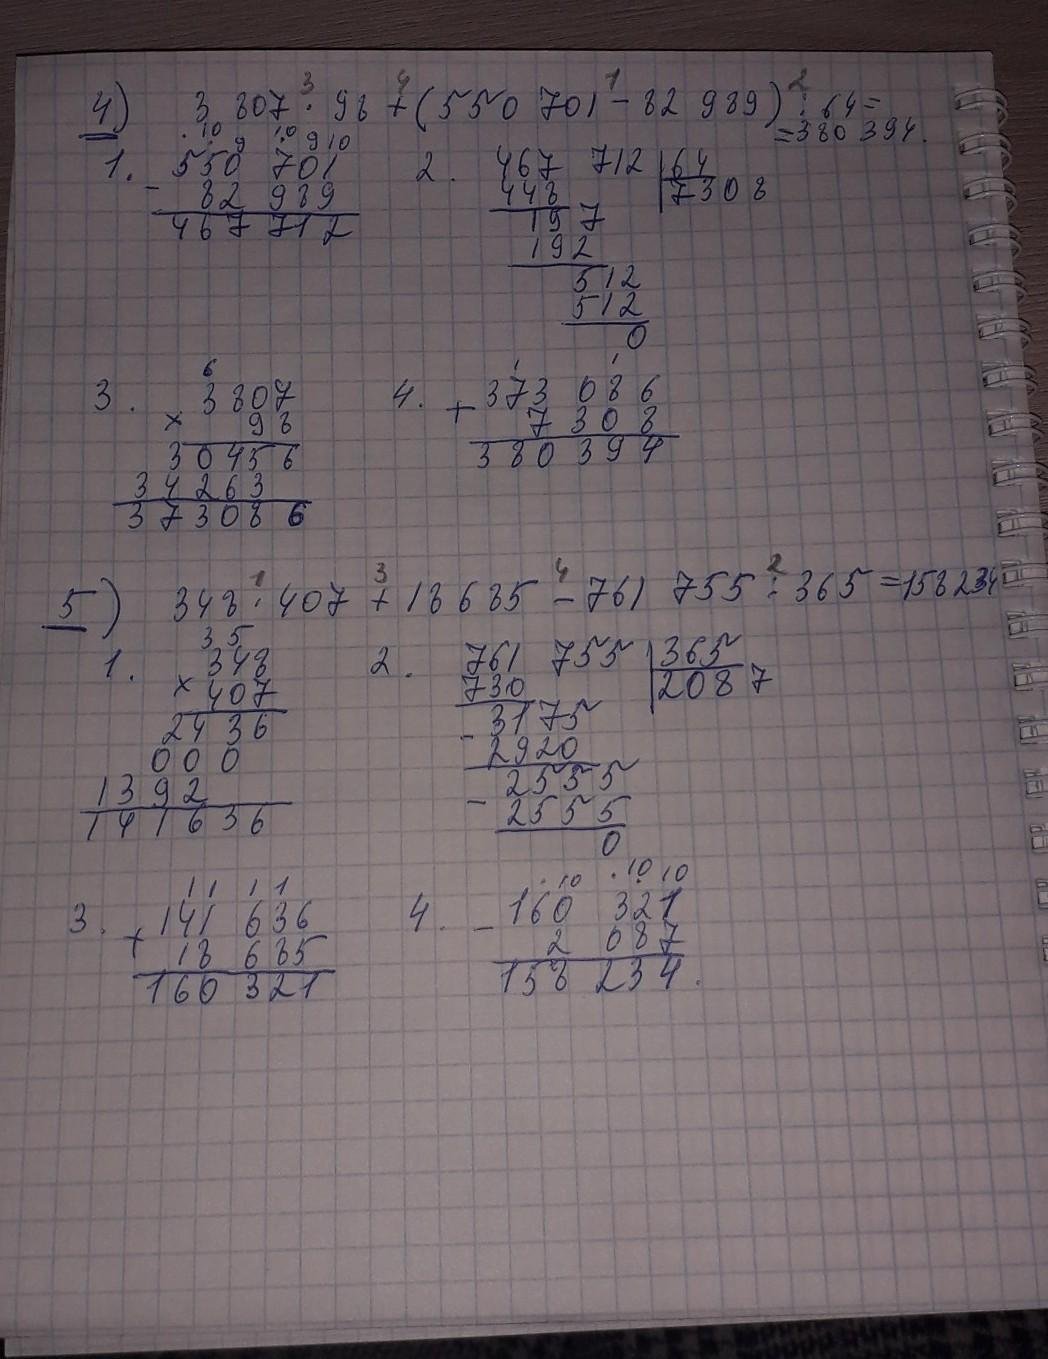 3 4 1 2
4) 3 807 · 98 + (550 701 - 82 989) : 64 =
= 380 394.
· 10 9 · 10 9 10
1. 550 701
- 82 989
467 712
2. 467 712 | 64
448 7308
197
192
512
512
0
6
3. 3807
× 98
30456
34263
373086
1 1
4. + 373 086
7 308
380 394
1 3 4 2
5) 348 · 407 + 18 685 - 761 755 : 365 = 158234
35
1. 348
× 407
2436
000
1392
141636
2. 761 755 | 365
730 2087
- 3175
2920
- 2555
2555
0
1 1 1 1
3. + 141 636
18 685
160 321
· 10 · 10 10
4. - 160 321
2 087
158 234.